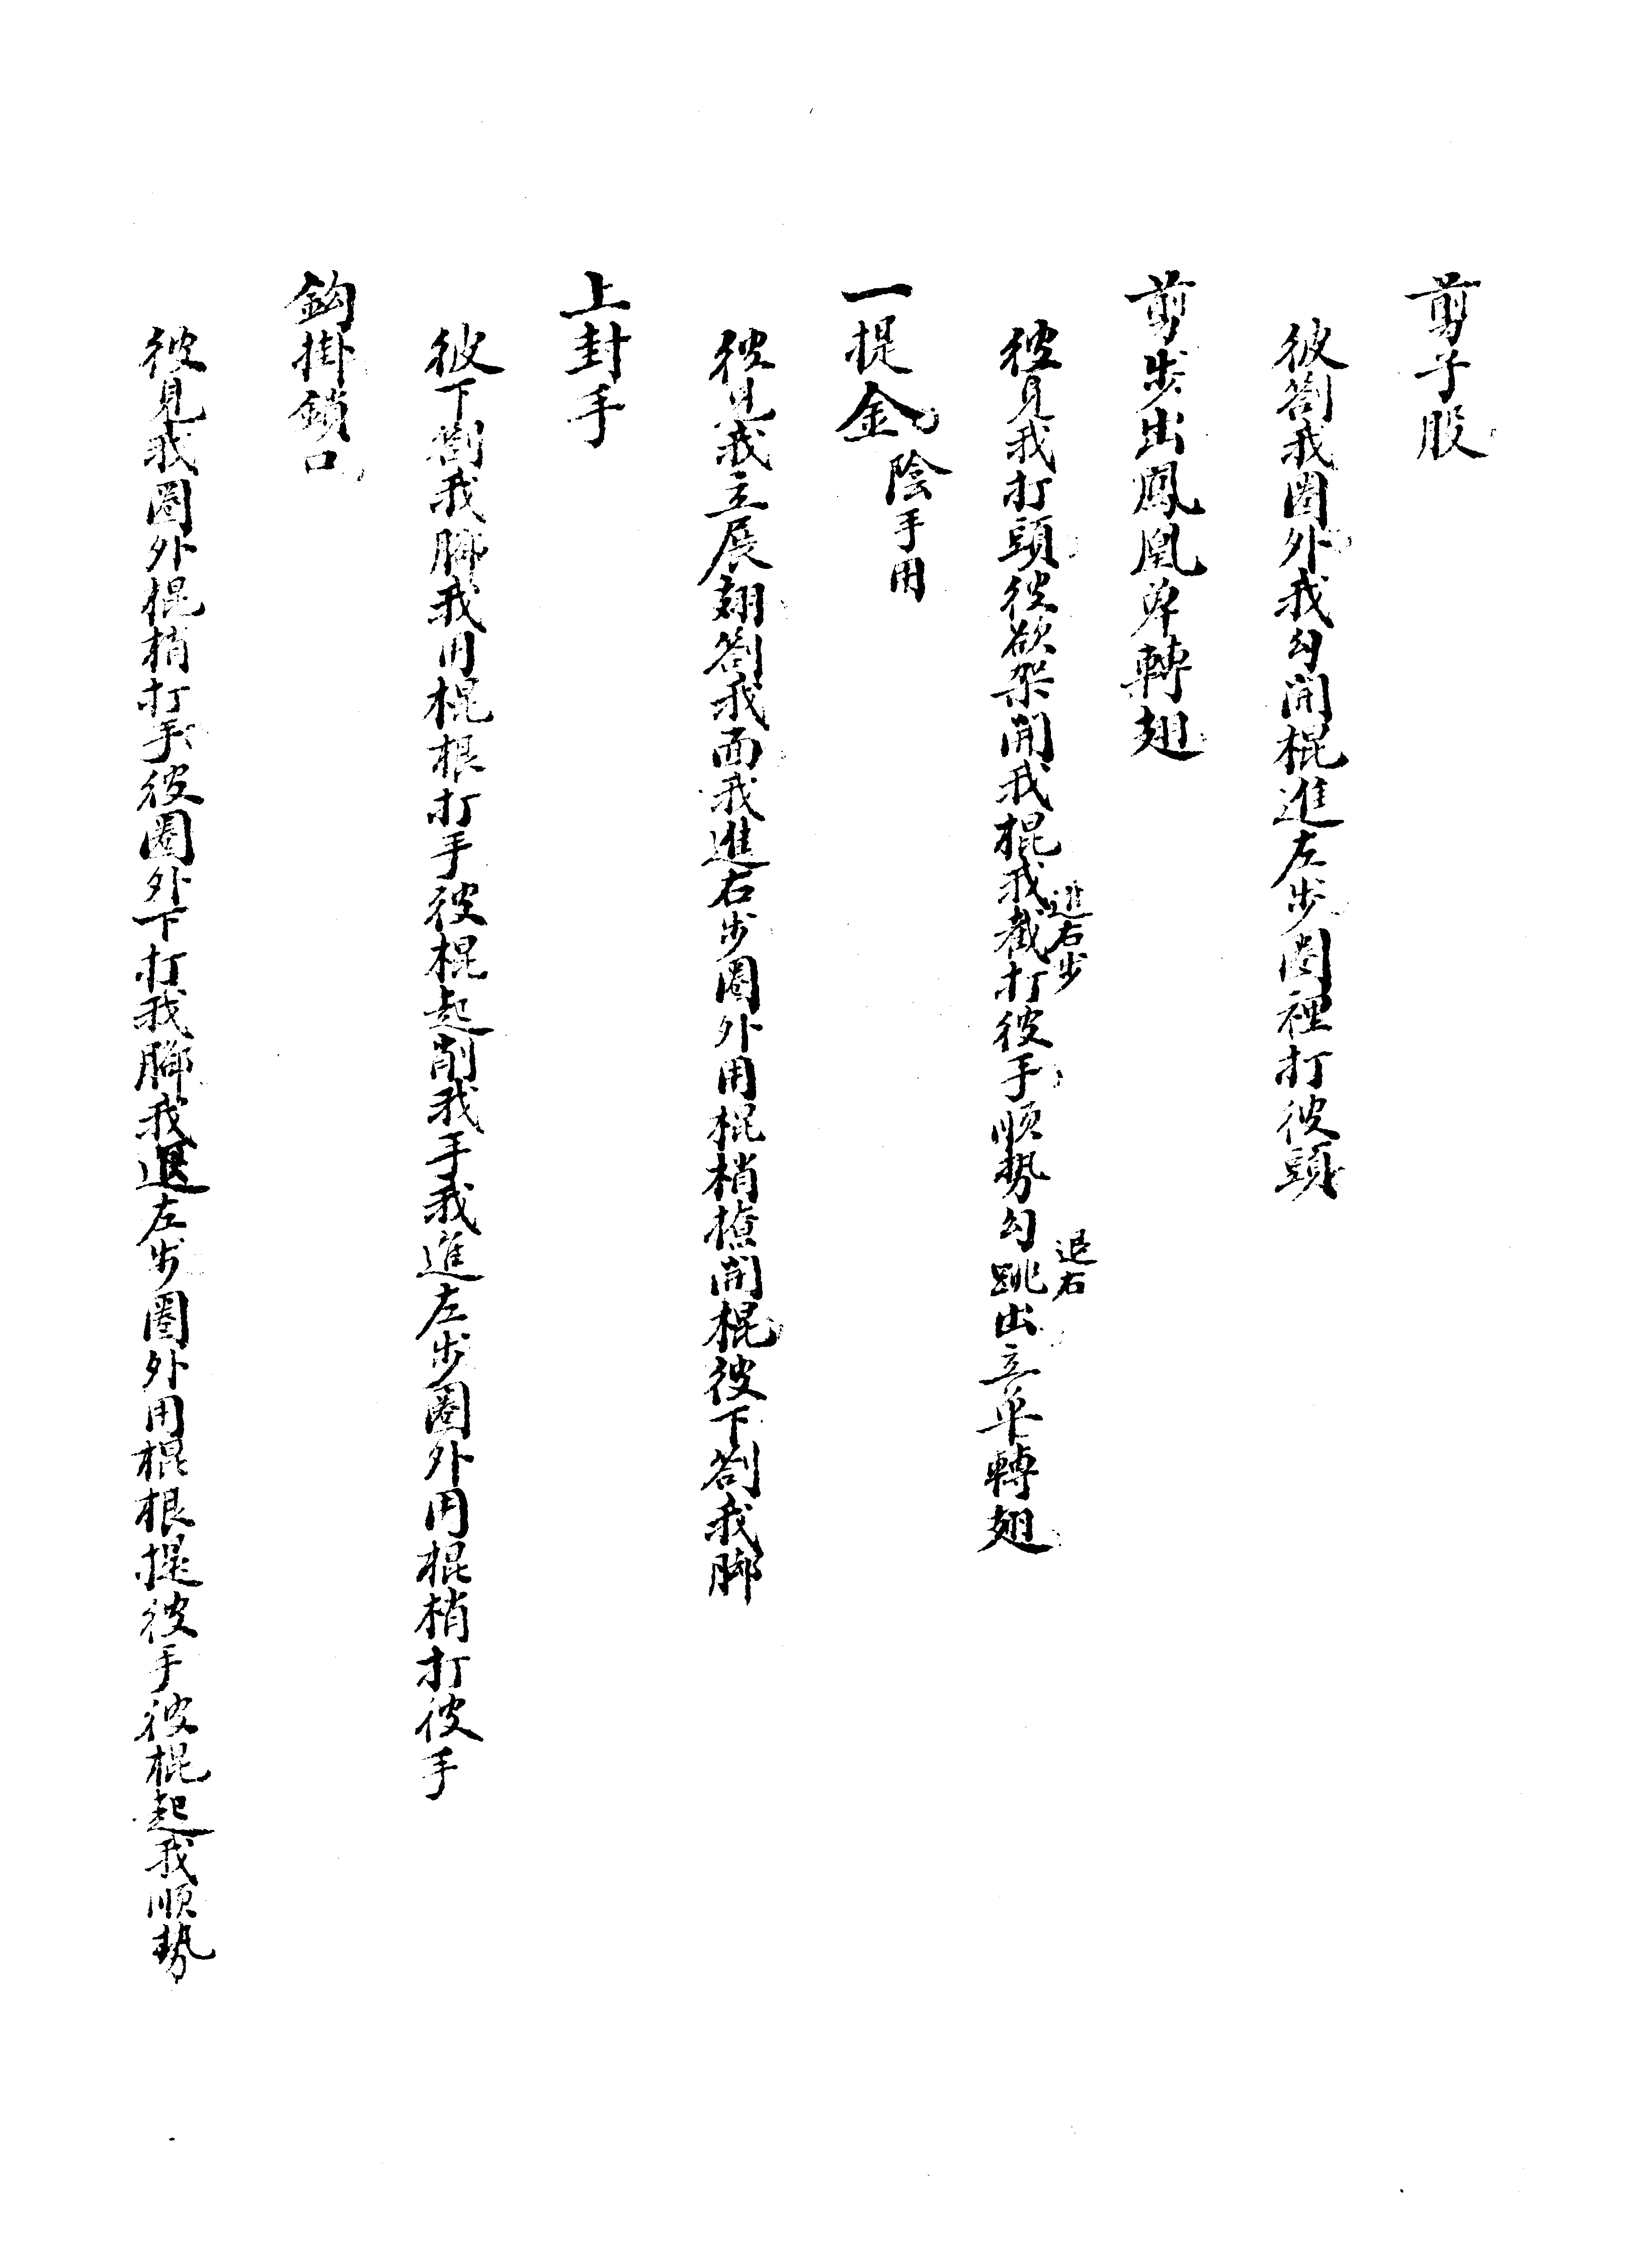 剪子股
彼劄我圈外我勾開棍進左步圈裡打彼頭
剪步出鳳凰单轉翅
彼見我打頭彼欲架開我棍我截打彼手順勢勾跳出立单轉翅
進右步
退右
一提金 陰手用
彼見我立展翅劄我面我進右步圈外用棍梢撩開棍彼下劄我脚
上封手
彼下劄我脚我用棍根打手彼棍起削我手我進左步圈外用棍梢打彼手
鈎掛鎖口
彼見我圈外棍梢打手彼圈外下打我脚我退左步圈外用棍根提彼手彼棍起我順勢